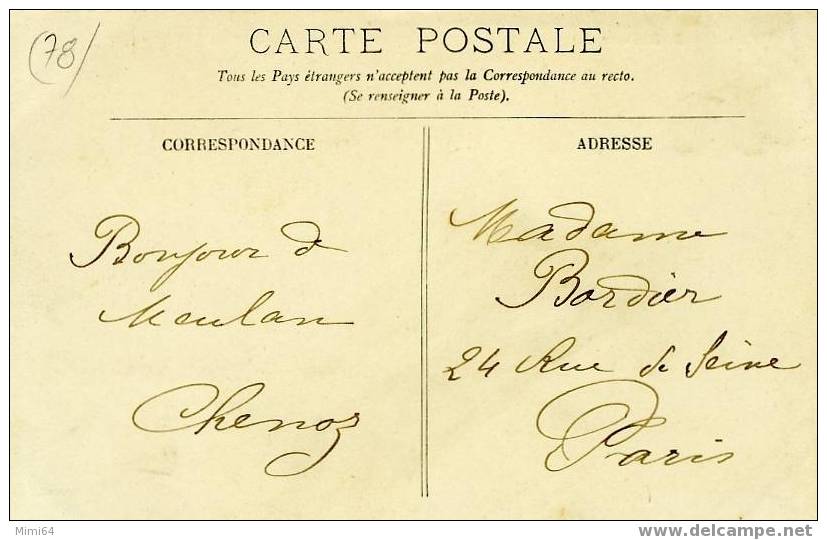 (78)
CARTE POSTALE
Tous les Pays étrangers n'acceptent pas la Correspondance au recto.
(Se renseigner à la Poste).
CORRESPONDANCE
Bonjour d
Meulan
Chenoz
ADRESSE
Madame
Bordier
24 Rue de Seine
Paris
Mimi64
delcampe.net